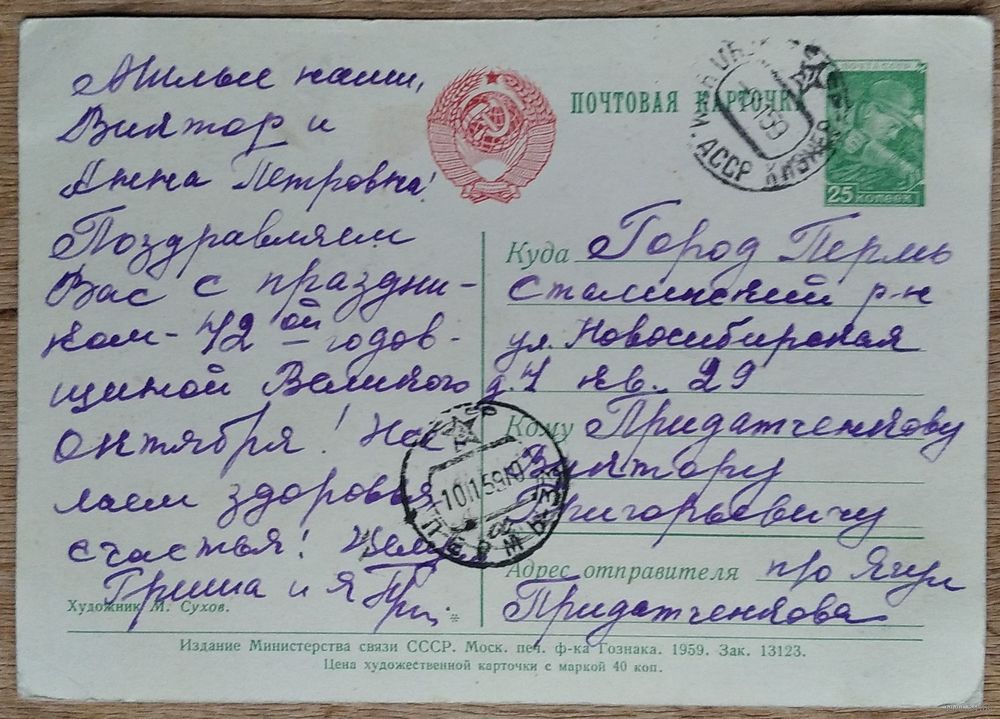 Милые наши,
Виктор и
Анна Петровна!
Поздравляем
Вас с праздни-
ком - 42ой годов-
щиной Великого
Октября! Же
лаем здоровья
счастья!
Гриша и Я
Художник М. Сухов.
ПОЧТОВАЯ КАРТОЧКА
АССР
59
25 копеек
Куда Город Пермь
Сталинский р-н
ул. Новосибирская
д. 7 кв. 29
Кому Придатченкову
Виктору
Григорьевичу
ПЕРМЬ
Адрес отправителя п/о Ягул
Придатченкова
Издание Министерства связи СССР. Моск. печ. ф-ка Гознака. 1959. Зак. 13123.
Цена художественной карточки с маркой 40 коп.